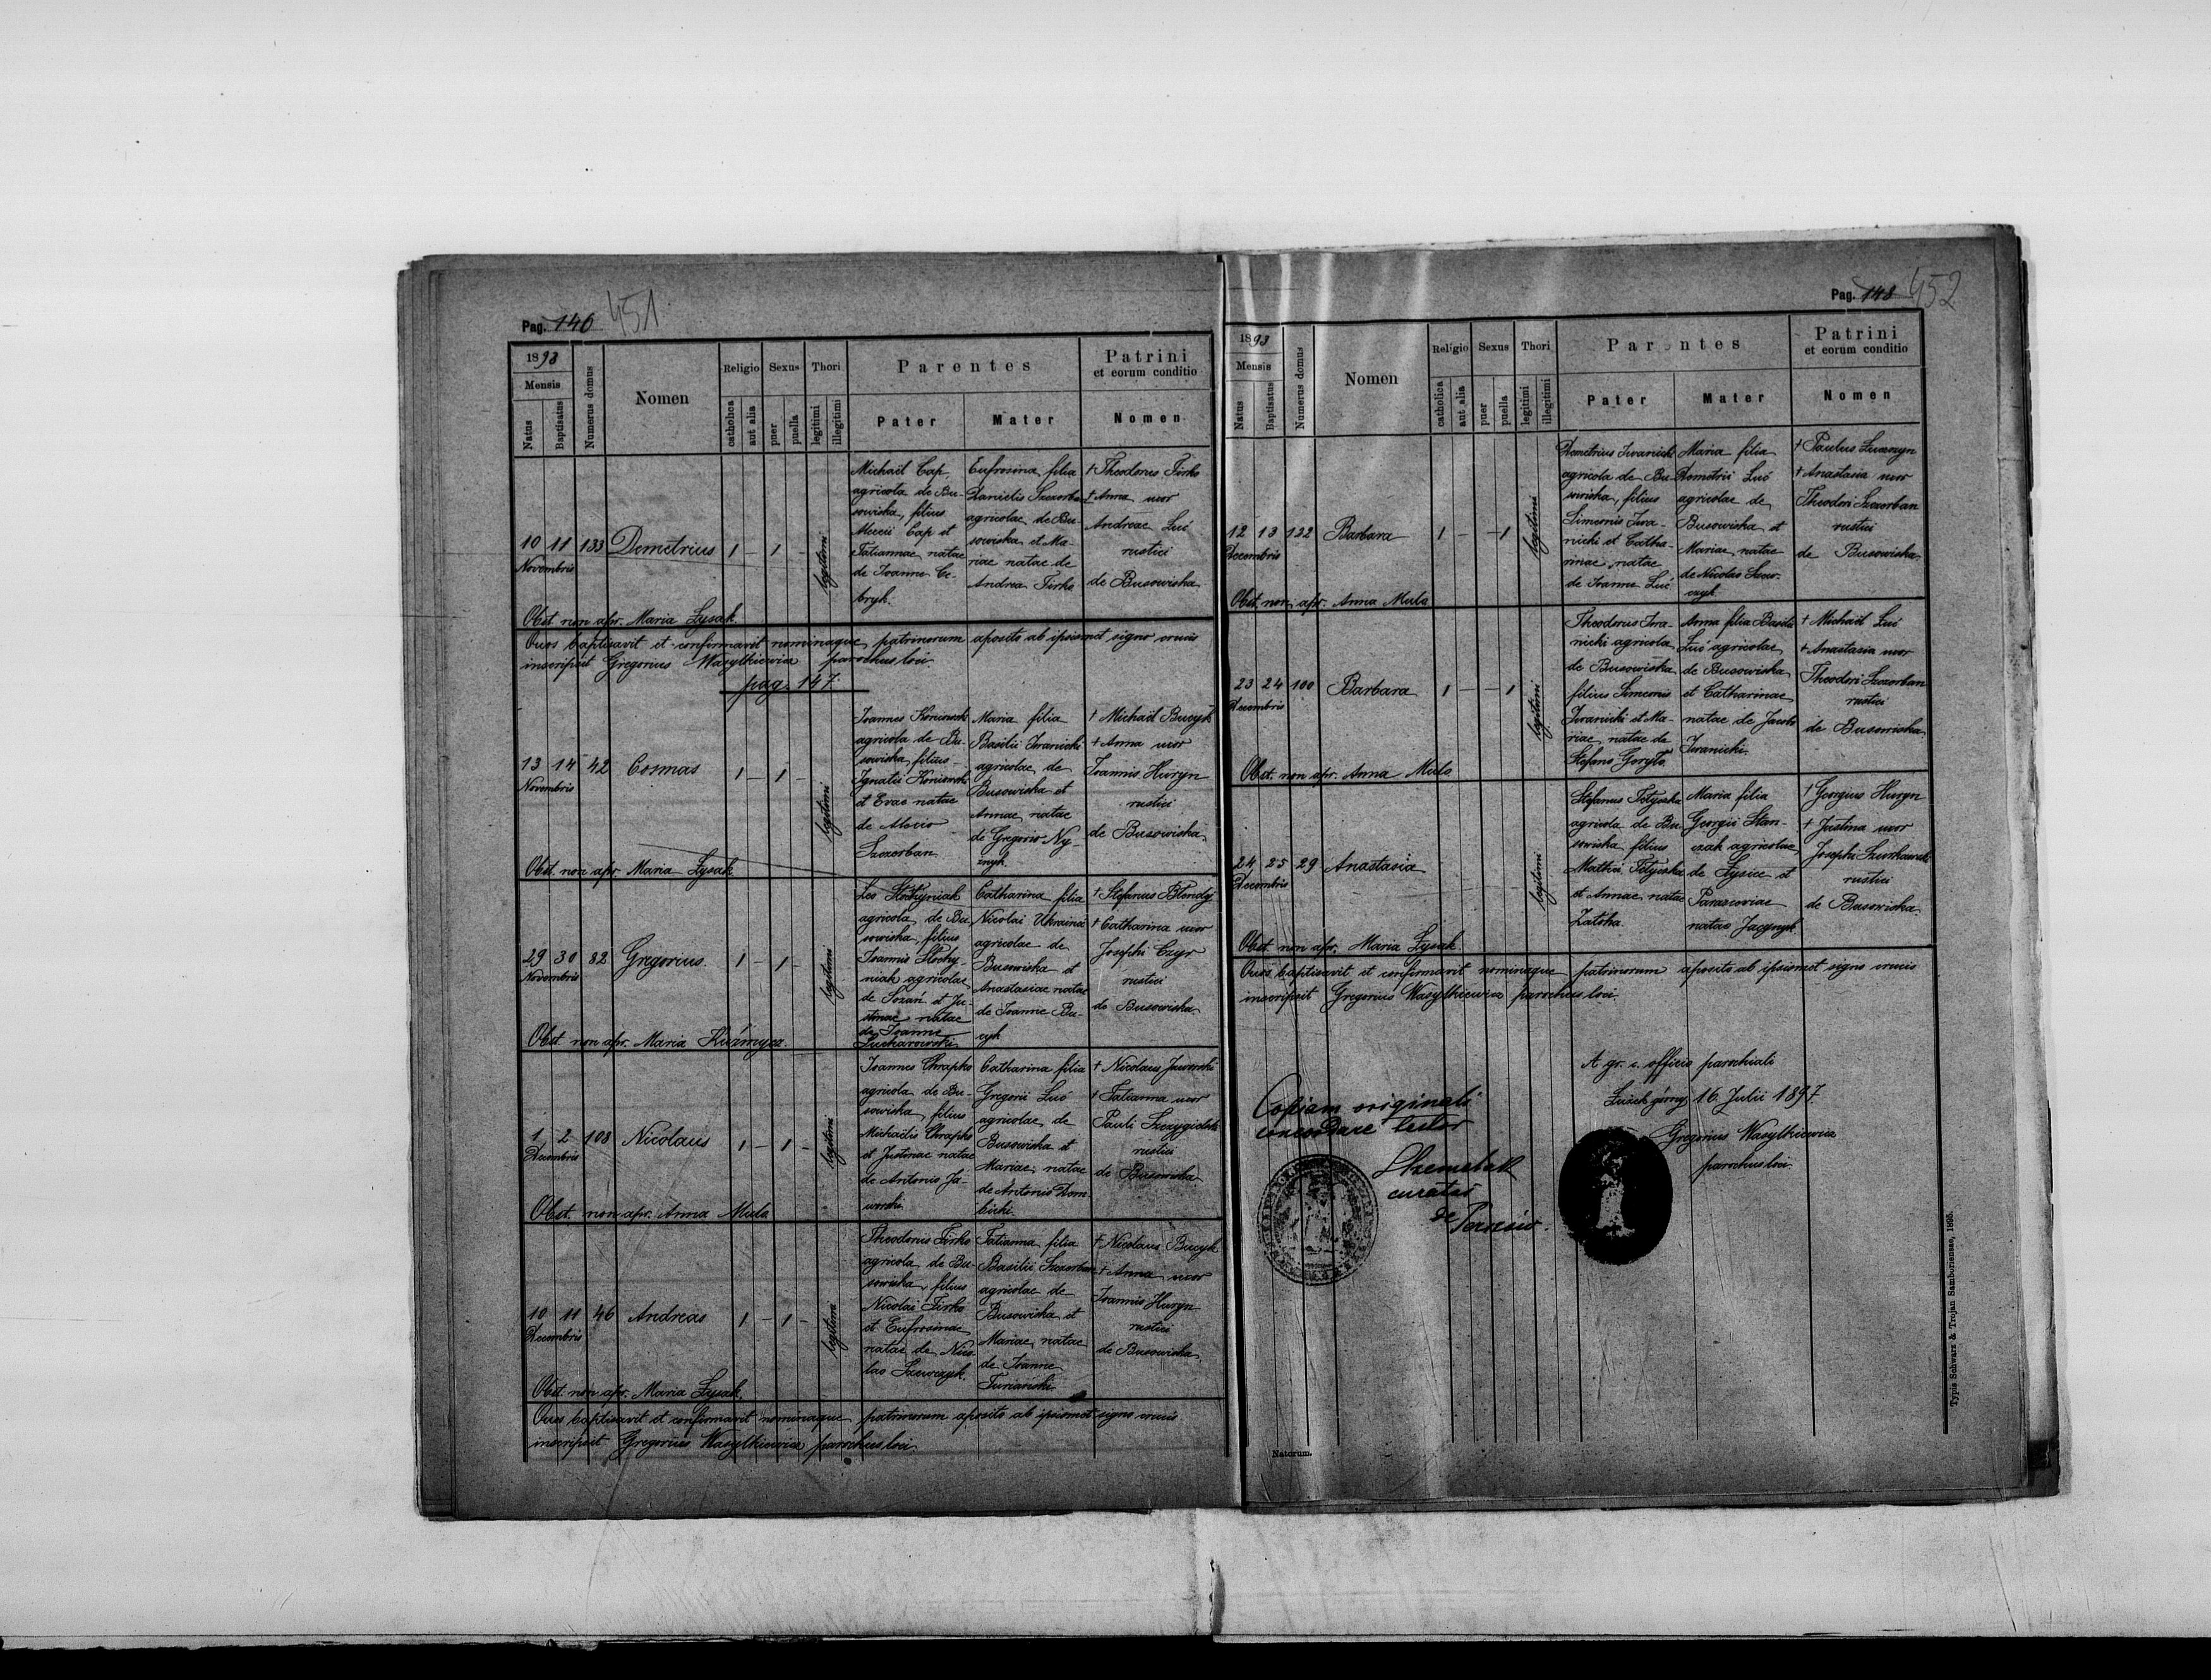 Pag. 146 451
1893
Mensis
Natus
Baptisatus
Numerus domus
Nomen
Religio
catholica
aut alia
Sexus
puer
puella
Thori
legitimi
illegitimi
Parentes
Pater
Mater
Patrini
et eorum conditio
Nomen
10 11 133 Demetrius 1 – 1 –
Novembris
legitimi
Michaël Cap
agricola de Bu-
sowiska, filius
Alexii Cap et
Tatiannae natae
de Joanne Ce-
bryk.
Eufrosina filia
Danielis Szczerban
agricolae de Bu-
sowiska et Ma-
riae natae de
Andrea Firko
† Theodorus Firko
† Anna uxor
Andreae Luć
rustici
de Busowiska
Obst. non apr. Maria Łysak.
Quos baptisavit et confirmavit nominaque patrinorum aposito ab ipsismet signo crucis
inscripsit Gregorius Wasylkiewicz parochus loci.
pag. 147.
13 14 42 Cosmas 1 – 1 –
Novembris
legitimi
Joannes Koniowski
agricola de Bu-
sowiska, filius
Ignatii Koniowski
et Evae natae
de Alexio
Szczerban
Maria filia
Basilii Iwanicki
agricolae de
Busowiska et
Annae natae
de Gregorio Ny-
znyk.
† Michaël Bucyk
† Anna uxor
Joannis Huryn
rustici
de Busowiska
Obst. non apr. Maria Łysak
29 30 82 Gregorius. 1 – 1 –
Novembris
legitimi
Leo Stochyniak
agricola de Bu-
sowiska, filius
Joannis Stochy-
niak agricolae
de Sozań et Ju-
stinae natae
de Joanne
Sucharowski
Catharina filia
Nicolai Ukrainci
agricolae de
Busowiska et
Anastasiae natae
de Joanne Bu-
cyk
† Stefanus Blondy
† Catharina uxor
Josephi Czyr
rustici
de Busowiska
Obst. non apr. Maria Kuźmycz.
1 2 108 Nicolaus 1 – 1 –
Decembris
legitimi
Joannes Chrapko
agricola de Bu-
sowiska filius
Michaëlis Chrapko
et Justinae natae
de Antonio Ja-
worski.
Catharina filia
Gregorii Luć
agricolae de
Busowiska et
Mariae, natae
de Antonio Dom-
bicki.
† Nicolaus Jaworski
† Tatianna uxor
Pauli Szczygielski
rustici
de Busowiska
Obst. non apr. Anna Mula
10 11 46 Andreas 1 – 1 –
Decembris
legitimi
Theodorus Firko
agricola de Bu-
sowiska filius
Nicolai Firko
et Eufrosinae
natae de Nico-
lao Szewczyk.
Tatianna filia
Basilii Szczerban
agricolae de
Busowiska et
Mariae, natae
de Joanne
Turiański.
† Nicolaus Bucyk
† Anna uxor
Joannis Huryn
rustici
de Busowiska.
Obst. non apr. Maria Łysak.
Quos baptisavit et confirmavit nominaque patrinorum aposito ab ipsismet signo crucis
inscripsit Gregorius Wasylkiewicz parochus loci.
Pag. 148 452
1893
Mensis
Natus
Baptisatus
Numerus domus
Nomen
Religio
catholica
aut alia
Sexus
puer
puella
Thori
legitimi
illegitimi
Parentes
Pater
Mater
Patrini
et eorum conditio
Nomen
12 13 122 Barbara 1 – – 1
Decembris
legitimi
Demetrius Iwanicki
agricola de Bu-
sowiska, filius
Simeonis Iwa-
nicki et Catha-
rinae natae
de Joanne Luć
Maria filia
Demetrii Luć
agricolae de
Busowiska et
Mariae natae
de Nicolao Szew-
czyk
† Paulus Szewczyn
† Anastasia uxor
Theodori Szczerban
rustici
de Busowiska.
Obst. non apr. Anna Mula
23 24 100 Barbara 1 – – 1
Decembris
legitimi
Theodorus Iwa-
nicki agricola
de Busowiska
filius Simeonis
Iwanicki et Ma-
riae natae de
Stefano Goryło.
Anna filia Basilii
Luć agricolae
de Busowiska
et Catharinae
natae de Jacobo
Iwanicki.
† Michaël Luć
† Anastasia uxor
Theodori Szczerban
rustici
de Busowiska
Obst. non apr. Anna Mula
24 25 29 Anastasia
Decembris
legitimi
Stefanus Fotyoska
agricola de Bu-
sowiska filius
Mathiae Fotyoska
et Annae natae
Zatoka
Maria filia
Georgii Stan-
czak agricolae
de Łysice et
Parasceviae
natae Jacynyk
† Georgius Huryn
† Justina uxor
Josephi
rustici
de Busowiska
Obst. non apr. Maria Łysak.
Quos baptisavit et confirmavit nominaque patrinorum aposito ab ipsismet signo crucis
inscripsit Gregorius Wasylkiewicz parochus loci.
A gr. c. officio parochiali
Łużek górny 16. Julii 1897
Gregorius Wasylkiewicz
parochus loci.
Copiam originali
concordare testor
curatus
de
Natorum.
Typis Schwarz & Trojan Samboriensae, 1895.